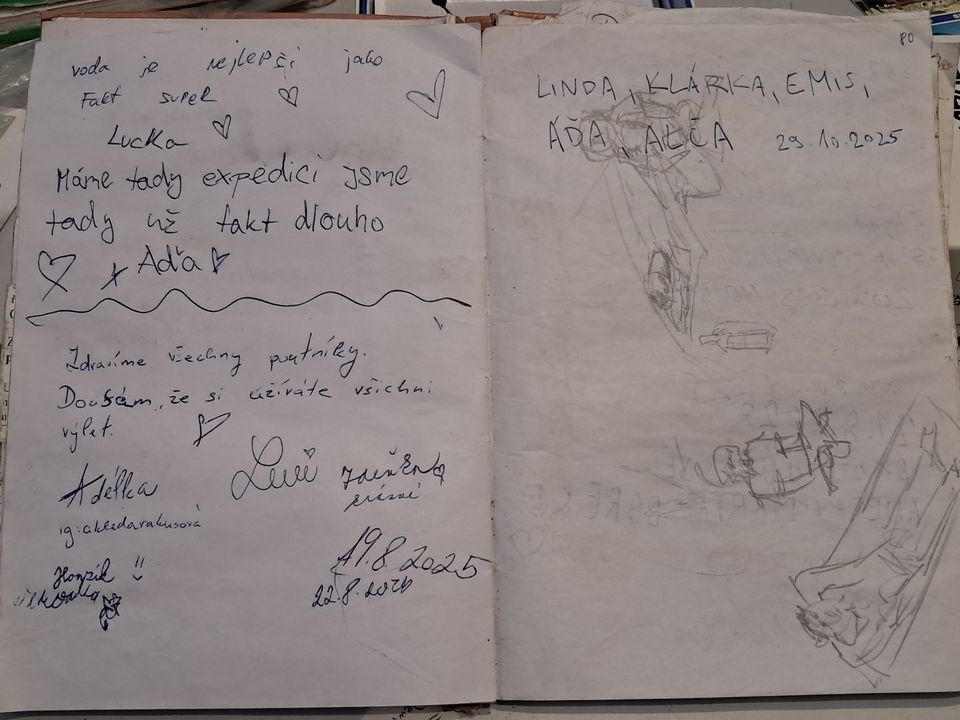 voda je nejlepší jako
Fakt super
Lucka
Máme tady expedici jsme
tady už fakt dlouho
x Aďa
Zdravíme všechny poutníky.
Doufám, že si užíváte všichni
výlet.
Adélka
ig:
Honzík !!
19.8.2025
22.8.2025
80
LINDA, KLÁRKA, EMIS,
AĎA, ALČA 29.10.2025